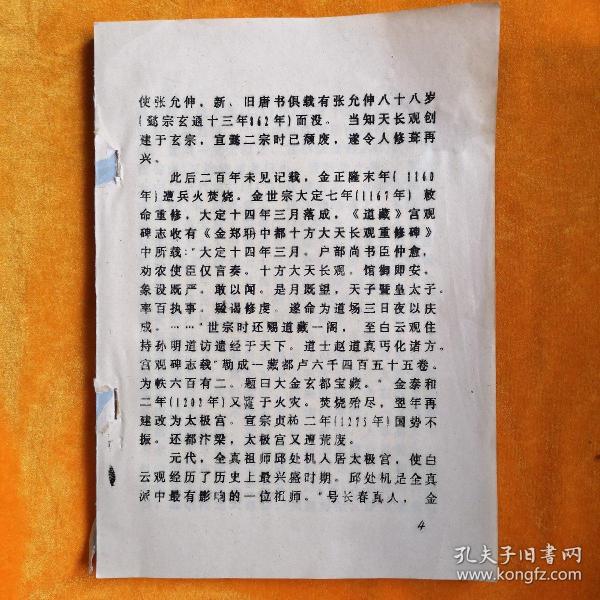 使张允伸，新、旧唐书俱载有张允伸八十八岁
(懿宗玄通十三年862年)而没。 当知天长观创
建于玄宗，宣懿二宗时已颓废，遂令人修葺再
兴。
此后二百年未见记载，金正隆末年( 1160
年)遭兵火焚烧。金世宗大定七年(1167年) 敕
命重修，大定十四年三月落成，《道藏》宫观
碑志收有《金郑聃中都十方大天长观重修碑》
中所载:"大定十四年三月。户部尚书臣仲愈，
劝农使臣仅言奏。十方大天长观，馆御即安。
象设既严。敢以闻。是月既望，天子暨皇太子。
率百执事。款谒修虔。遂命为道场三日夜以庆
成。……"世宗时还赐道藏一阁， 至白云观住
持孙明道访遗经于天下。道士赵道真丐化诸方。
宫观碑志载"勒成一藏都卢六千四百五十五卷。
为帙六百有二。题曰大金玄都宝藏。" 金泰和
二年(1202年)又罹于火灾。焚烧殆尽，翌年再
建改为太极宫。宣宗贞祐二年(1275年)国势不
振。还都汴梁，太极宫又遭荒废。
元代，全真祖师邱处机入居太极宫，使白
云观经历了历史上最兴盛时期。邱处机是全真
派中最有影响的一位祖师。"号长春真人， 金
4
孔夫子旧书网
www.kongfz.com